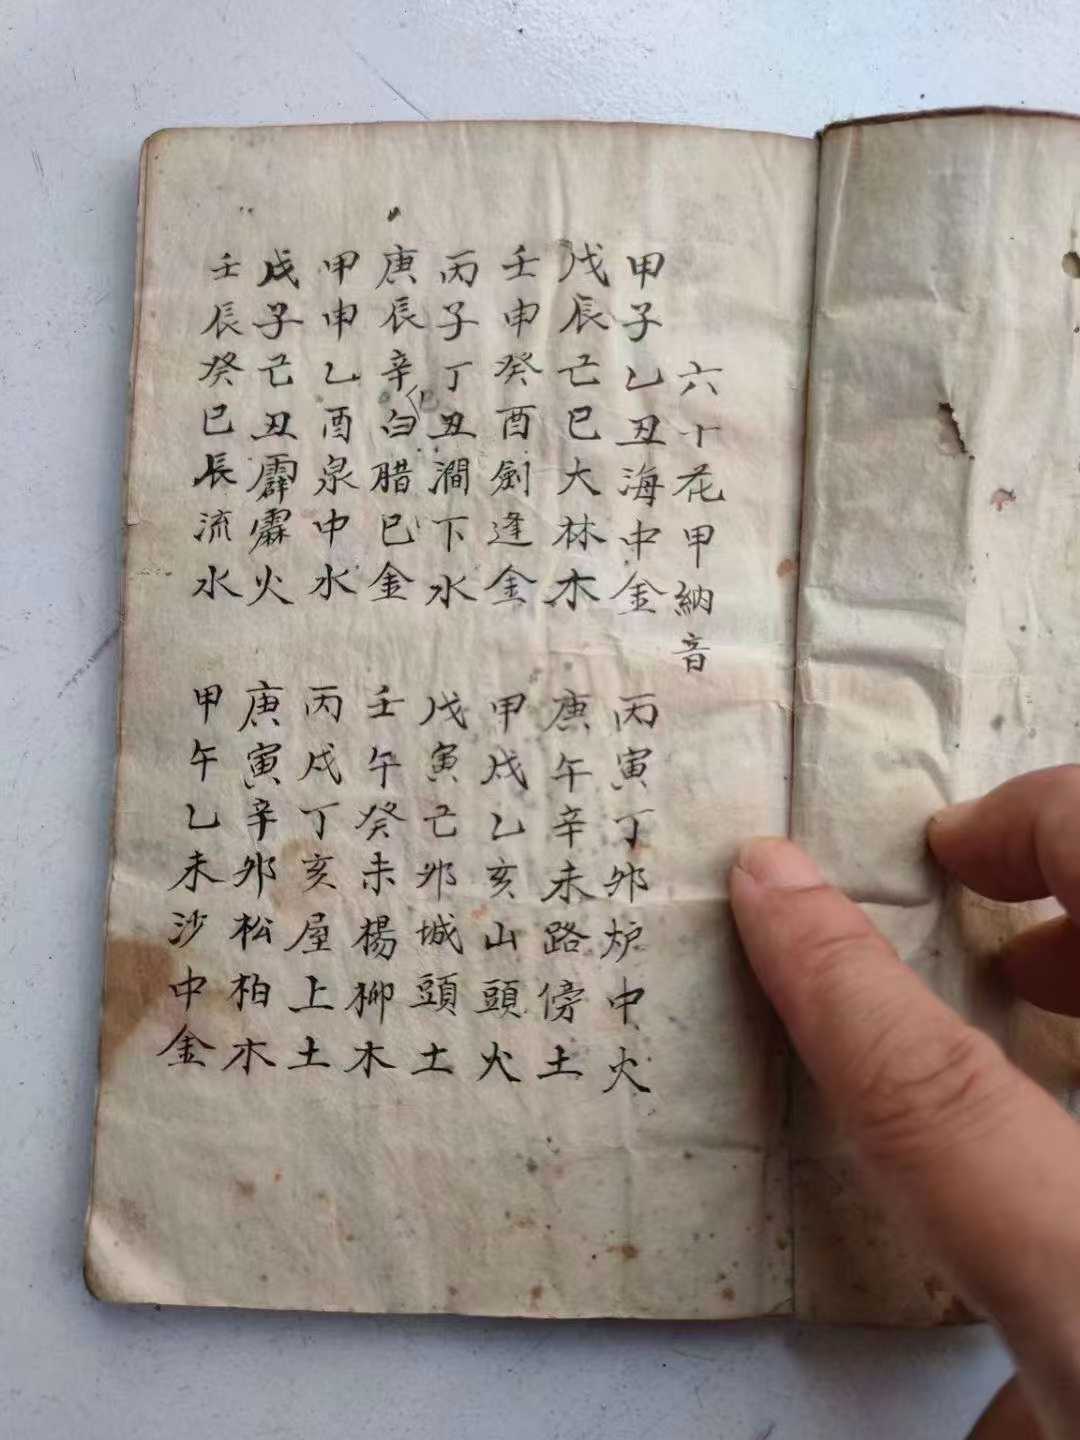 六十花甲納音
甲子乙丑海中金
丙寅丁夘炉中火
戊辰己巳大林木
庚午辛未路傍土
壬申癸酉劍逢金
甲戌乙亥山頭火
丙子丁丑澗下水
戊寅己夘城頭土
庚辰辛巳白腊巳金
壬午癸未楊柳木
甲申乙酉泉中水
丙戌丁亥屋上土
戊子己丑霹霖火
庚寅辛夘松柏木
壬辰癸巳辰流水
甲午乙未沙中金